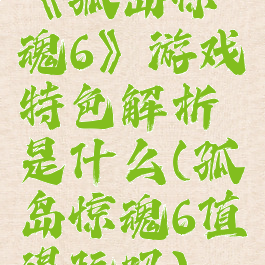 《孤岛惊
魂6》游戏
特色解析
是什么(孤
岛惊魂6值
得玩吗)